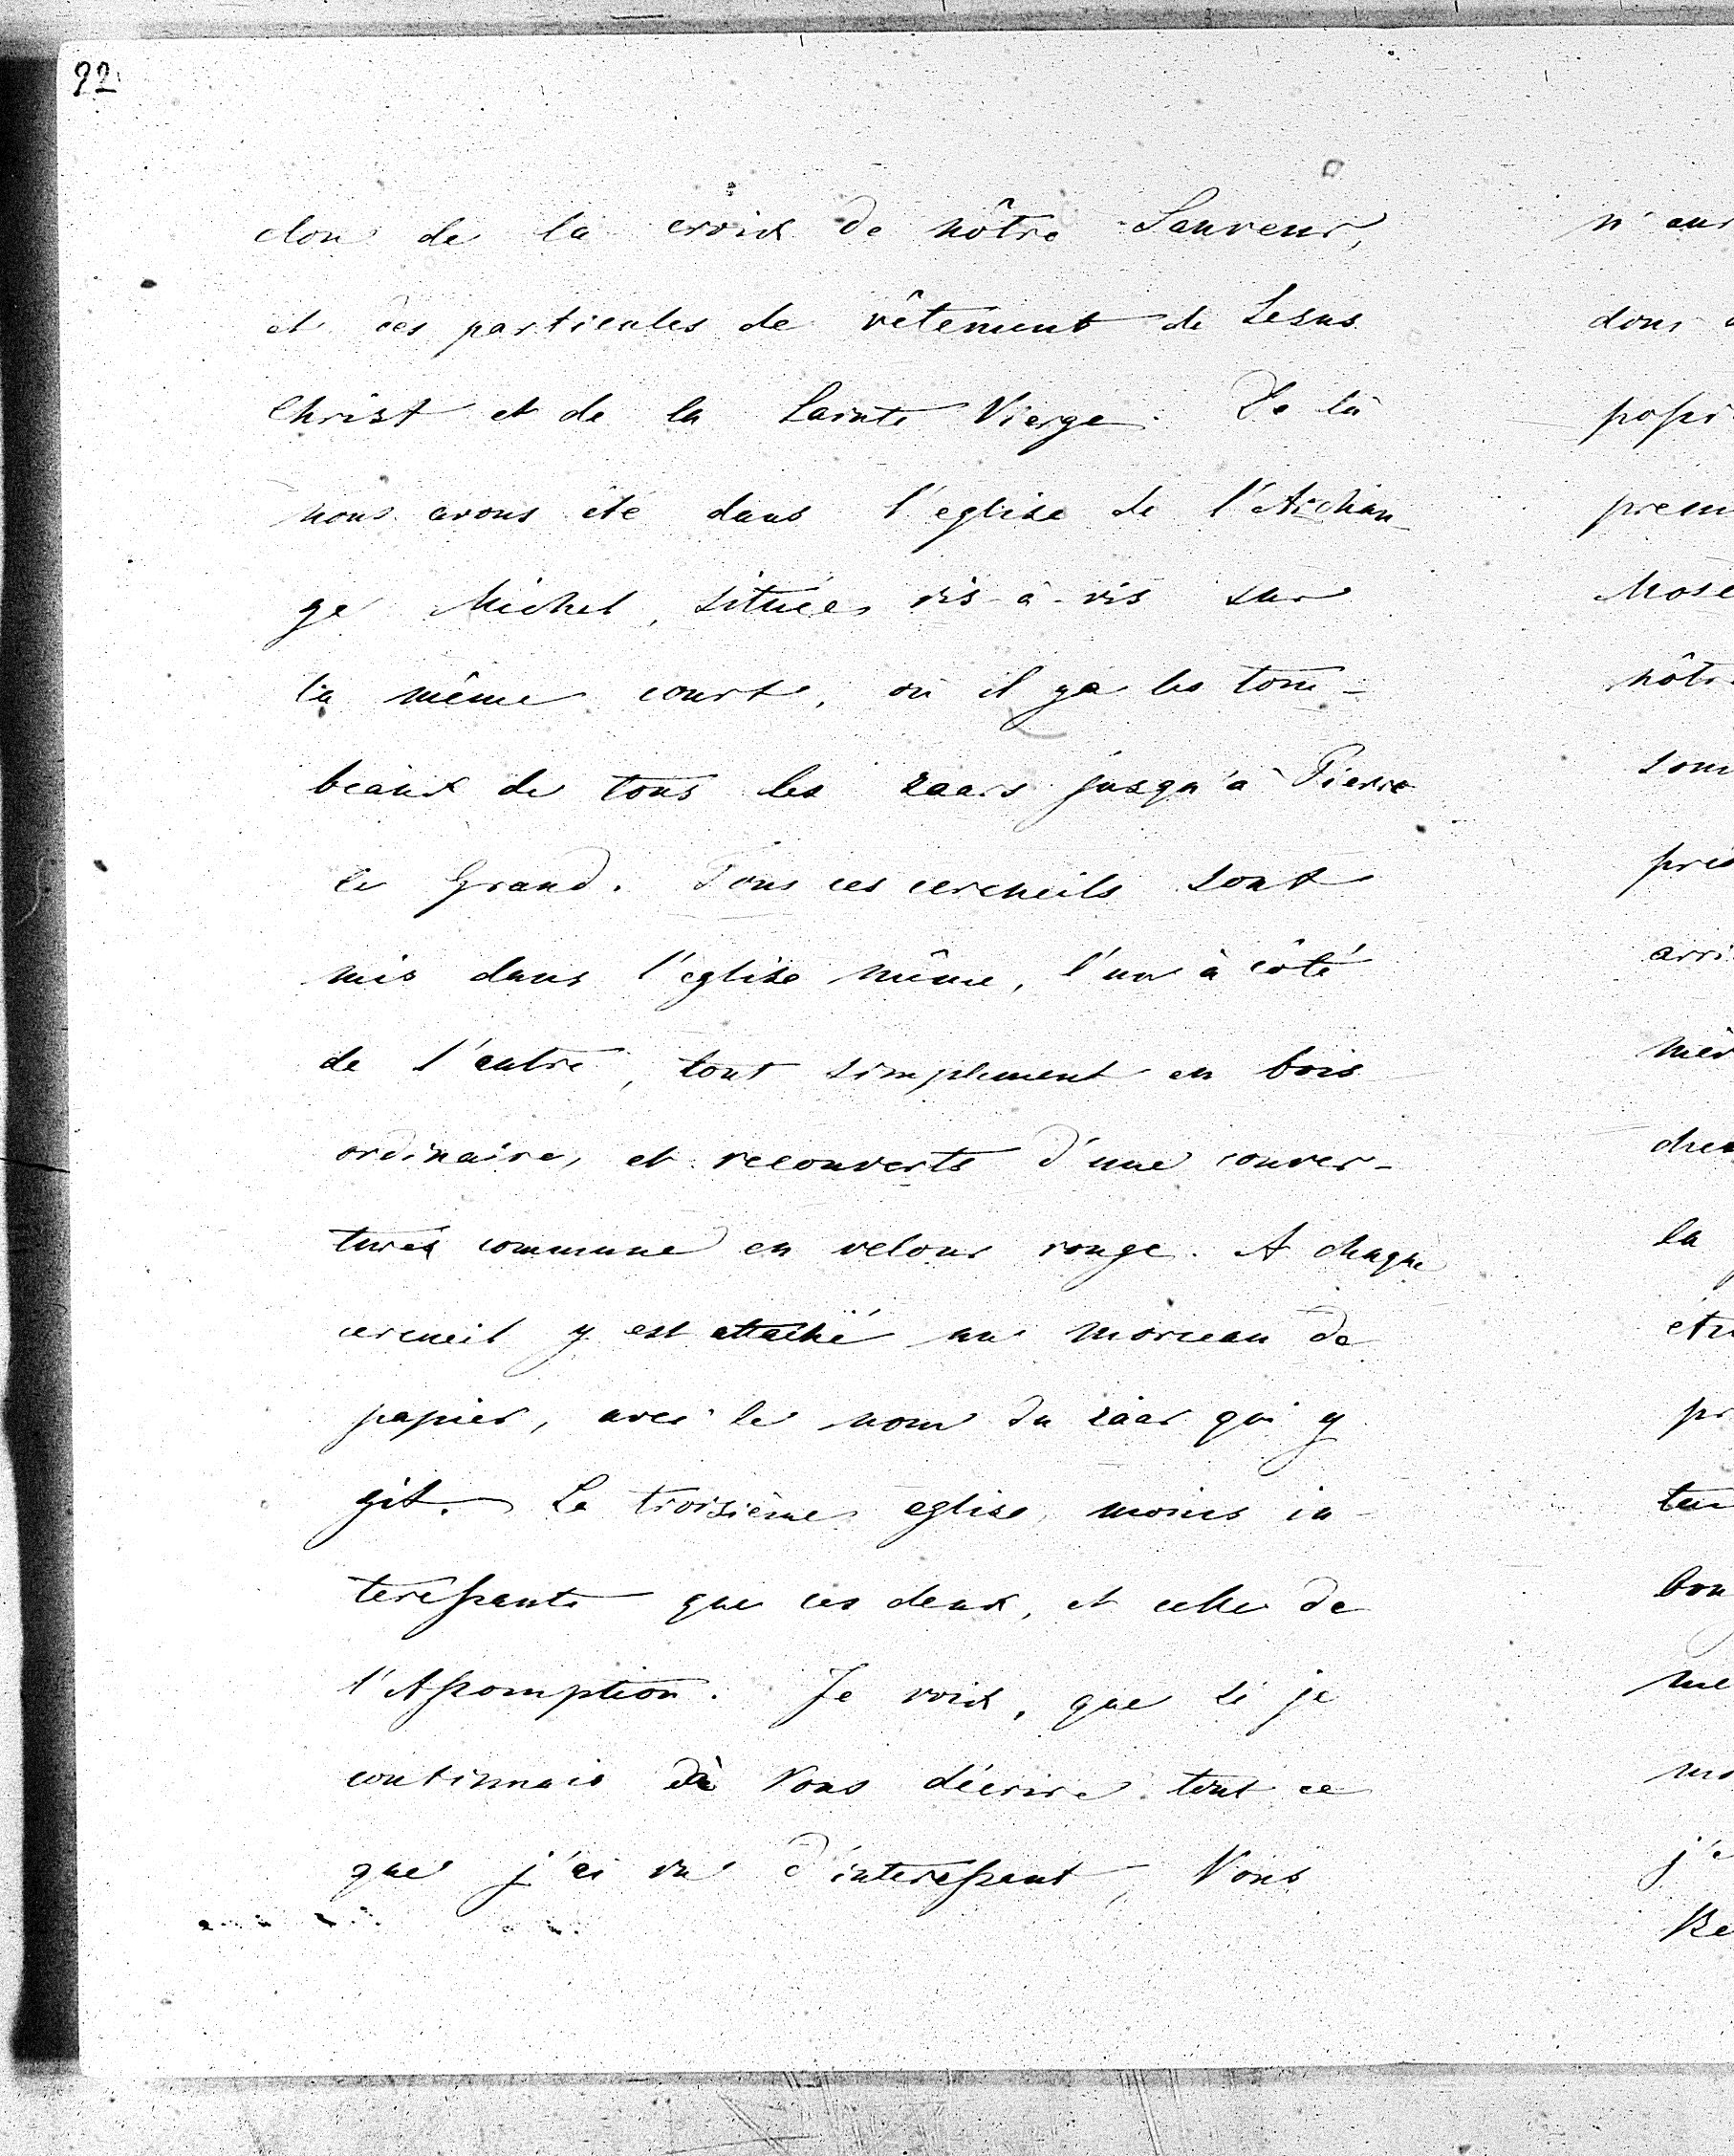 22
clou de la croix de nôtre Sauveur,
et des particules de vêtement de Jesus
Christ et de la Sainte Vierge. De là
nous avons été dans l'eglise de l'Archan-
ge Michel, située vis-à-vis sur
la même court, où il ya les tom-
beaux de tous les zaars jusqu'à Pierre
le Grand. Tous ces cercueils sont
mis dans l'eglise même, l'un à côté
de l'autre, tout simplement en bois
ordinaire, et recouverts d'une couver-
ture commune en velour rouge. A chaque
cercueil y est attaché un morceau de
papier, avec le nom du zaar qui y
git. La troisième eglise, moins in-
teressante que ces deux, et celle de
l'Assomption. Je voix, que si je
continuais à Vous décrire tout ce
que j'ai vu d'interessant, Vous
n'aur
dons
possi
prem
Mosc
nôtr
som
prés
arri
mêr
la
étu
pr
bon
me
j'a